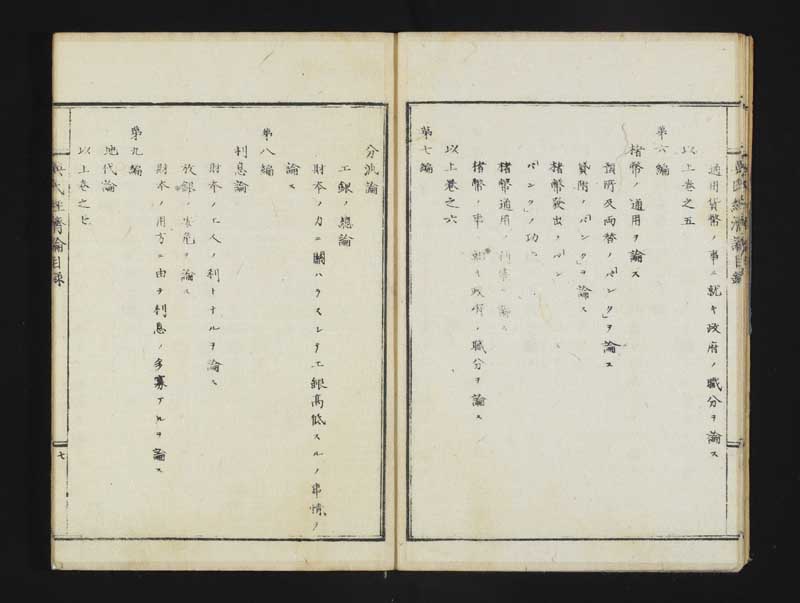 通用貨幣ノ事ニ就キ政府ノ職分ヲ論ス
以上巻之五
第六編
楮幣ノ通用ヲ論ス
預所及両替ノ「バンク」ヲ論ス
貸附ノ「バンク」ヲ論ス
楮幣発出ノ「バン
「バンク」ノ功
楮幣通用ノ利害ヲ論ス
楮幣ノ事ニ就キ政府ノ職分ヲ論ス
以上巻之六
第七編
分派論
工銀ノ總論
財本ノ力ニ關ハラスシテ工銀高低スルノ事情ヲ
論ス
第八編
利息論
財本ノ工人ノ利トナルヲ論ス
放銀ノ安危ヲ論ス
財本ノ用方ニ由テ利息ノ多寡アルヲ論ス
第九編
地代論
以上巻之七
氏経済論目録
七